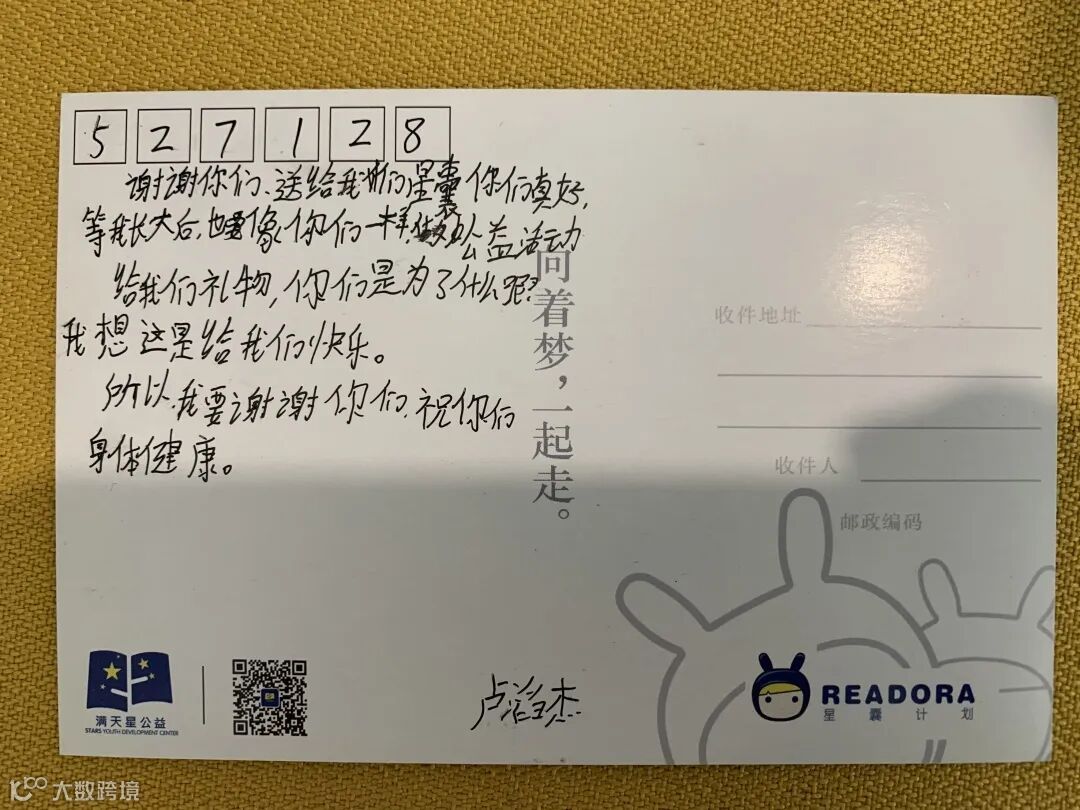 527128
谢谢你们、送给我们星囊你们真好,
等我长大后,也要像你们一样,做公益活动
给我们礼物,你们是为了什么呢?
我想这是给我们快乐。
所以,我要谢谢你们,祝你们
身体健康。
向着梦,一起走。
收件地址
收件人
邮政编码
满天星公益
STARS YOUTH DEVELOPMENT CENTER
卢
杰
READORA
星囊计划
大数跨境